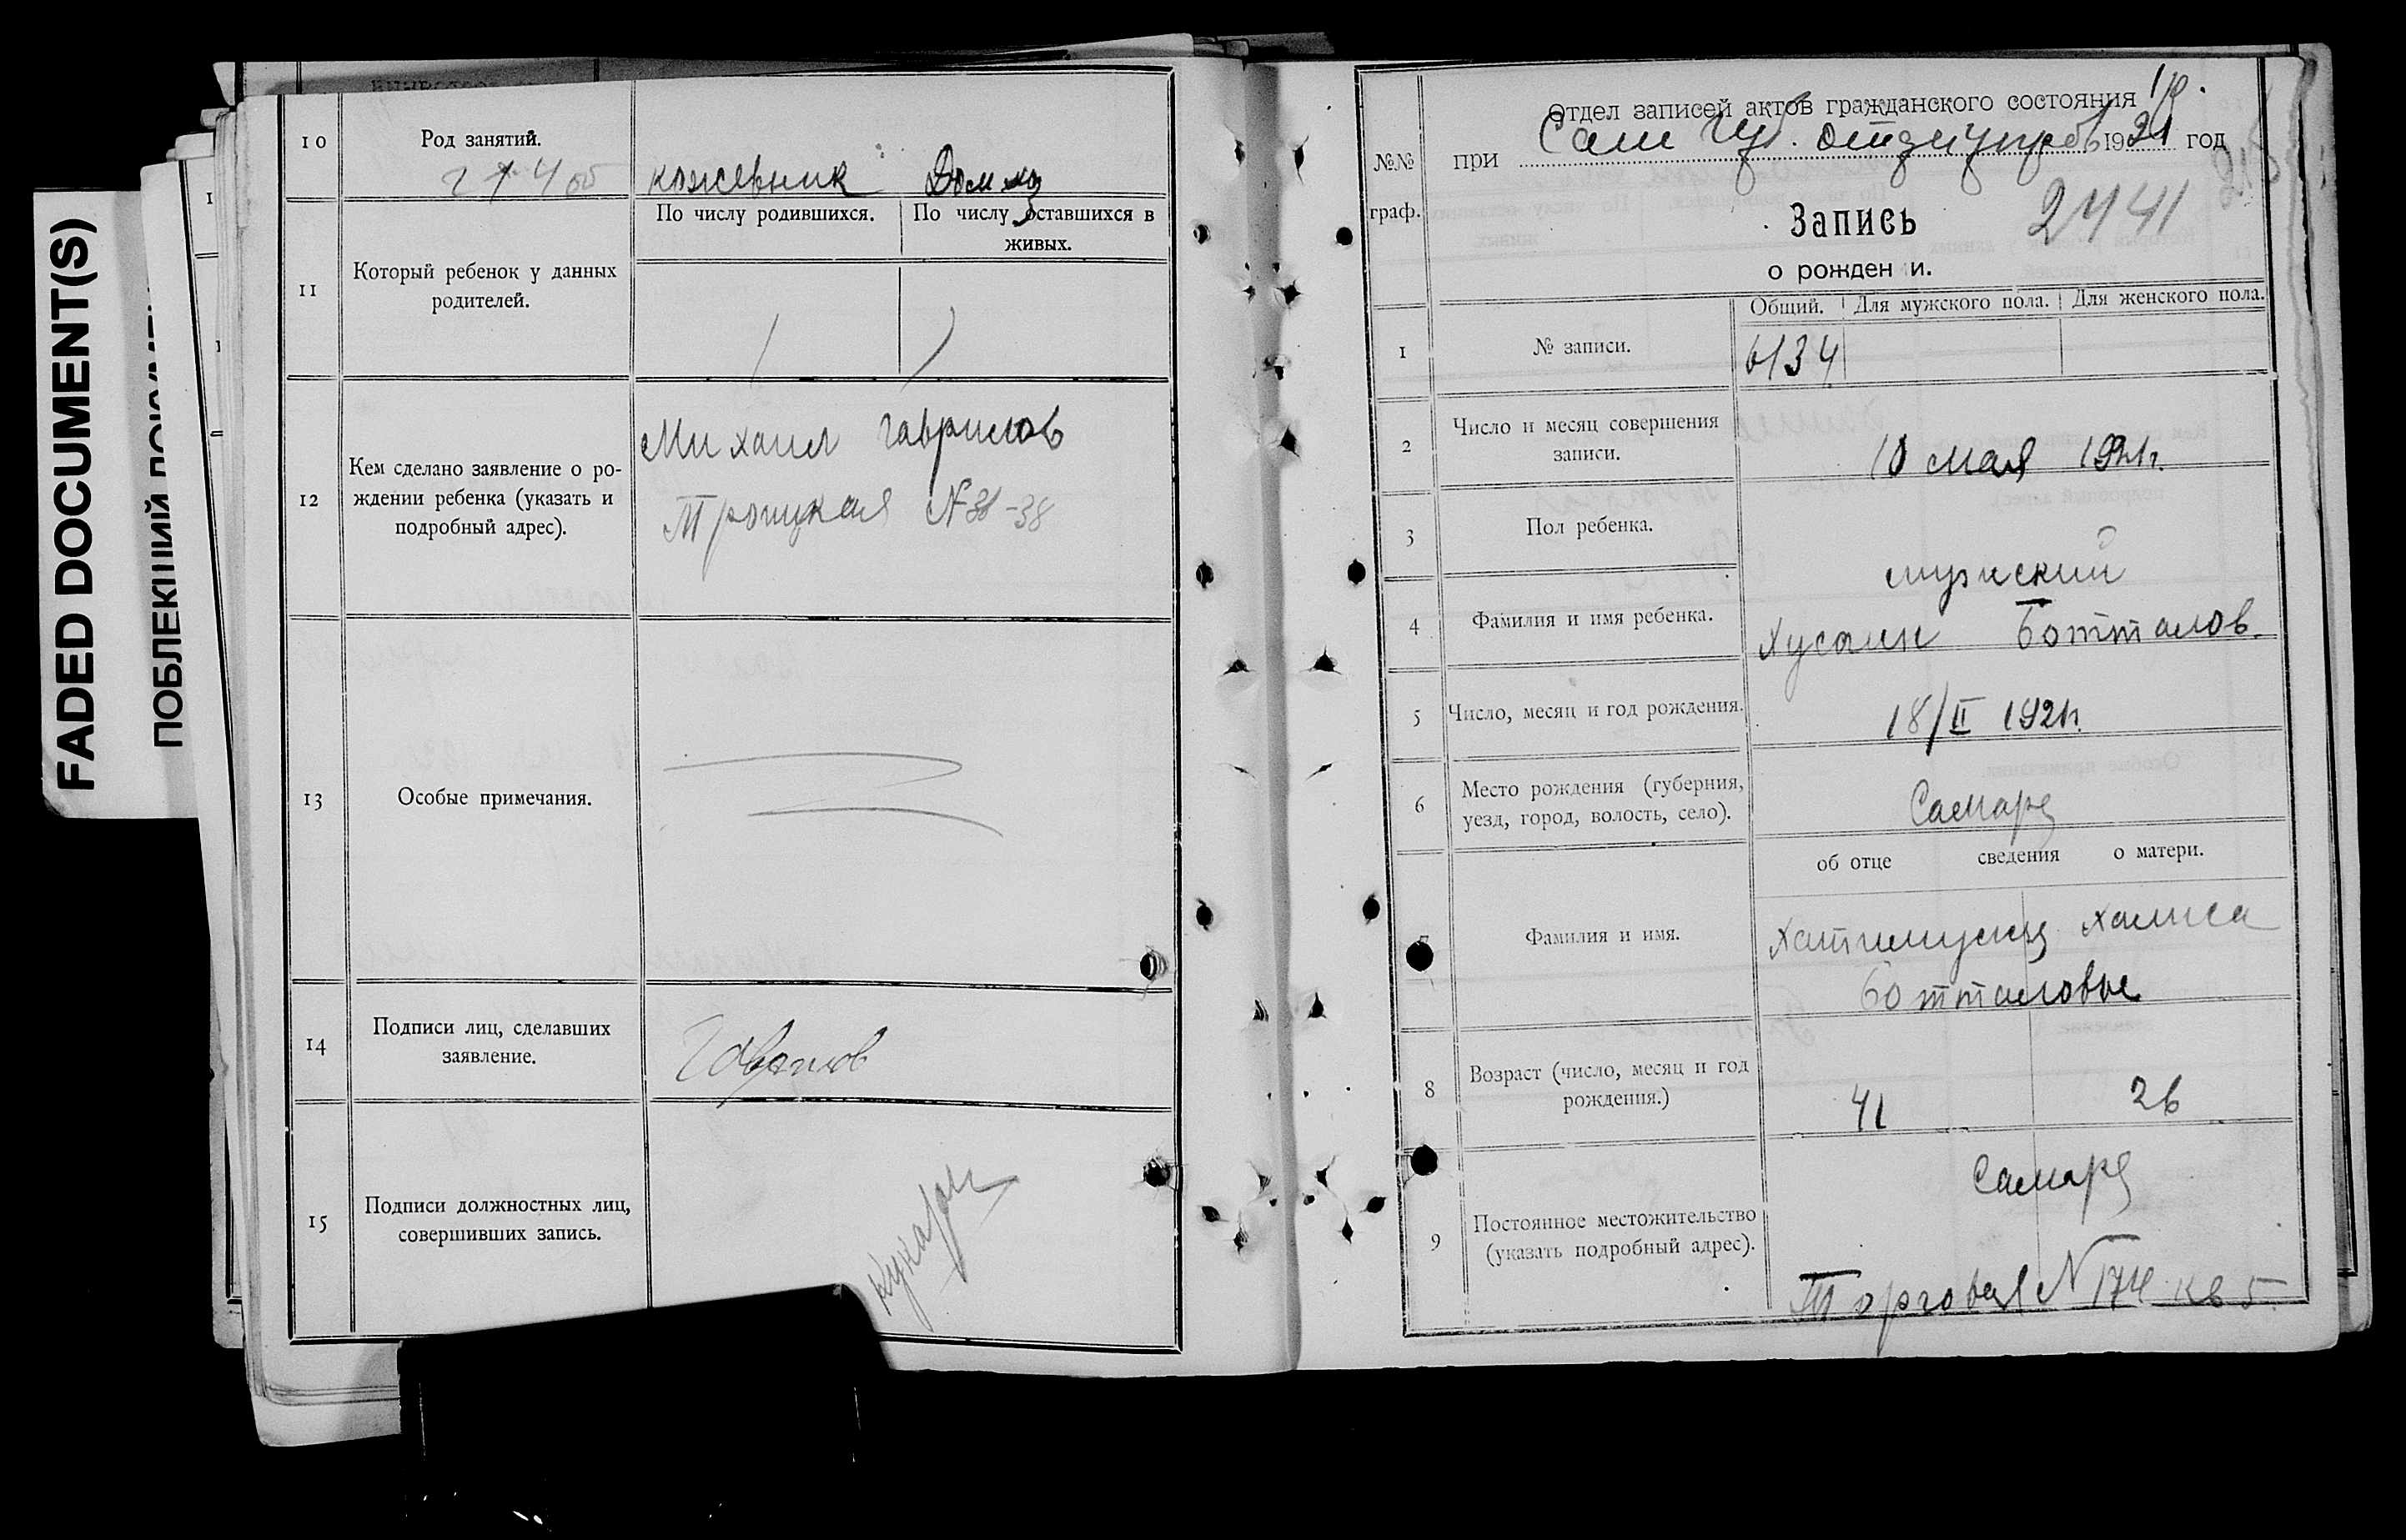 FADED DOCUMENT(S)
ПОБЛЕКШИЙ
10
Род занятий.
274 об
кожевник Дом хоз
11
Который ребенок у данных
родителей.
По числу родившихся.
По числу оставшихся в
живых.
1 1
12
Кем сделано заявление о ро-
ждении ребенка (указать и
подробный адрес).
Михаил Гаврилов
Троицкая № 38-38
13
Особые примечания.
14
Подписи лиц, сделавших
заявление.
Гаврилов
15
Подписи должностных лиц,
совершивших запись.
№№
граф.
Отдел записей актов гражданского состояния
при Сам Губ. 1921 год
2741
Запись
о рожден и.
Общий. Для мужского пола. Для женского пола.
1
№ записи.
6134
2
Число и месяц совершения
записи.
10 мая 1921г.
3
Пол ребенка.
мужский
4
Фамилия и имя ребенка.
Хусаин Ботталов.
5
Число, месяц и год рождения.
18/II 1921г.
6
Место рождения (губерния,
уезд, город, волость, село).
Самара
об отце сведения о матери.
7
Фамилия и имя.
Халиса
Ботталовы
8
Возраст (число, месяц и год
рождения.)
41 26
9
Постоянное местожительство
(указать подробный адрес).
Самара
Торговая № 174 кв 5.